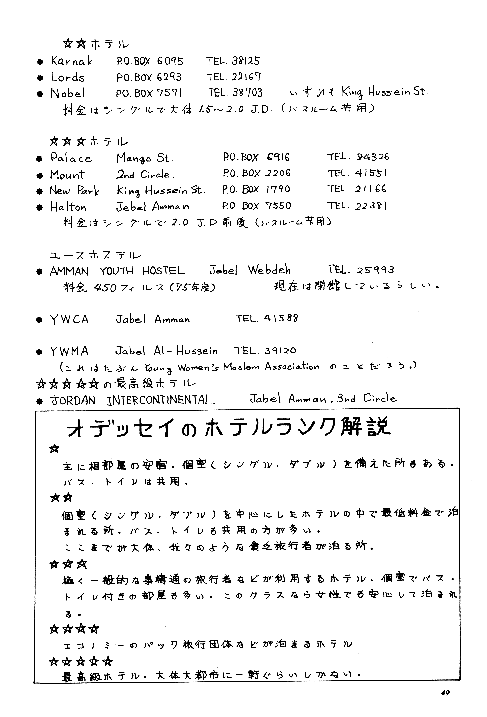 ☆☆ホテル
● Karnak P.O.BOX 6095 TEL. 38125
● Lords P.O.BOX 6293 TEL. 22167
● Nobel P.O.BOX 7571 TEL. 38703 いずれも King Hussein St.
料金はシングルで大体 1.5〜2.0 J.D. (バスルーム共用)
☆☆☆ホテル
● Palace Mango St. P.O.BOX 6916 TEL. 24326
● Mount 2nd Circle. P.O.BOX 2206 TEL. 41551
● New Park King Hussein St. P.O.BOX 1790 TEL 21166
● Halton Jebel Amman P.O BOX 7550 TEL. 22381
料金はシングルで 2.0 J.D 前後 (バスルーム専用)
ユースホステル
● AMMAN YOUTH HOSTEL Jabel Webdeh TEL. 25993
料金 450フィルス (75年度) 現在は閉館しているらしい。
● YWCA Jabel Amman TEL. 41588
● YWMA Jabel Al-Hussein TEL. 39120
(これはたぶん Young Women's Moslem Association のことだろう。)
☆☆☆☆☆の最高級ホテル
● JORDAN INTERCONTINENTAL Jabel Amman, 3rd Circle
オデッセイのホテルランク解説
☆
主に相部屋の安宿。個室(シングル、ダブル)を備えた所もある。
バス、トイレは共用。
☆☆
個室(シングル、ダブル)を中心にしたホテルの中で最低料金で泊
まれる所。バス、トイレも共用の方が多い。
ここまでが大体、我々のような貧乏旅行者が泊る所。
☆☆☆
極く一般的な普通の旅行者などが利用するホテル。個室でバス・
トイレ付きの部屋も多い。このクラスなら女性でも安心して泊まれ
る。
☆☆☆☆
エコノミーのパック旅行団体などが泊まるホテル
☆☆☆☆☆
最高級ホテル。大体大都市に一軒ぐらいしかない。